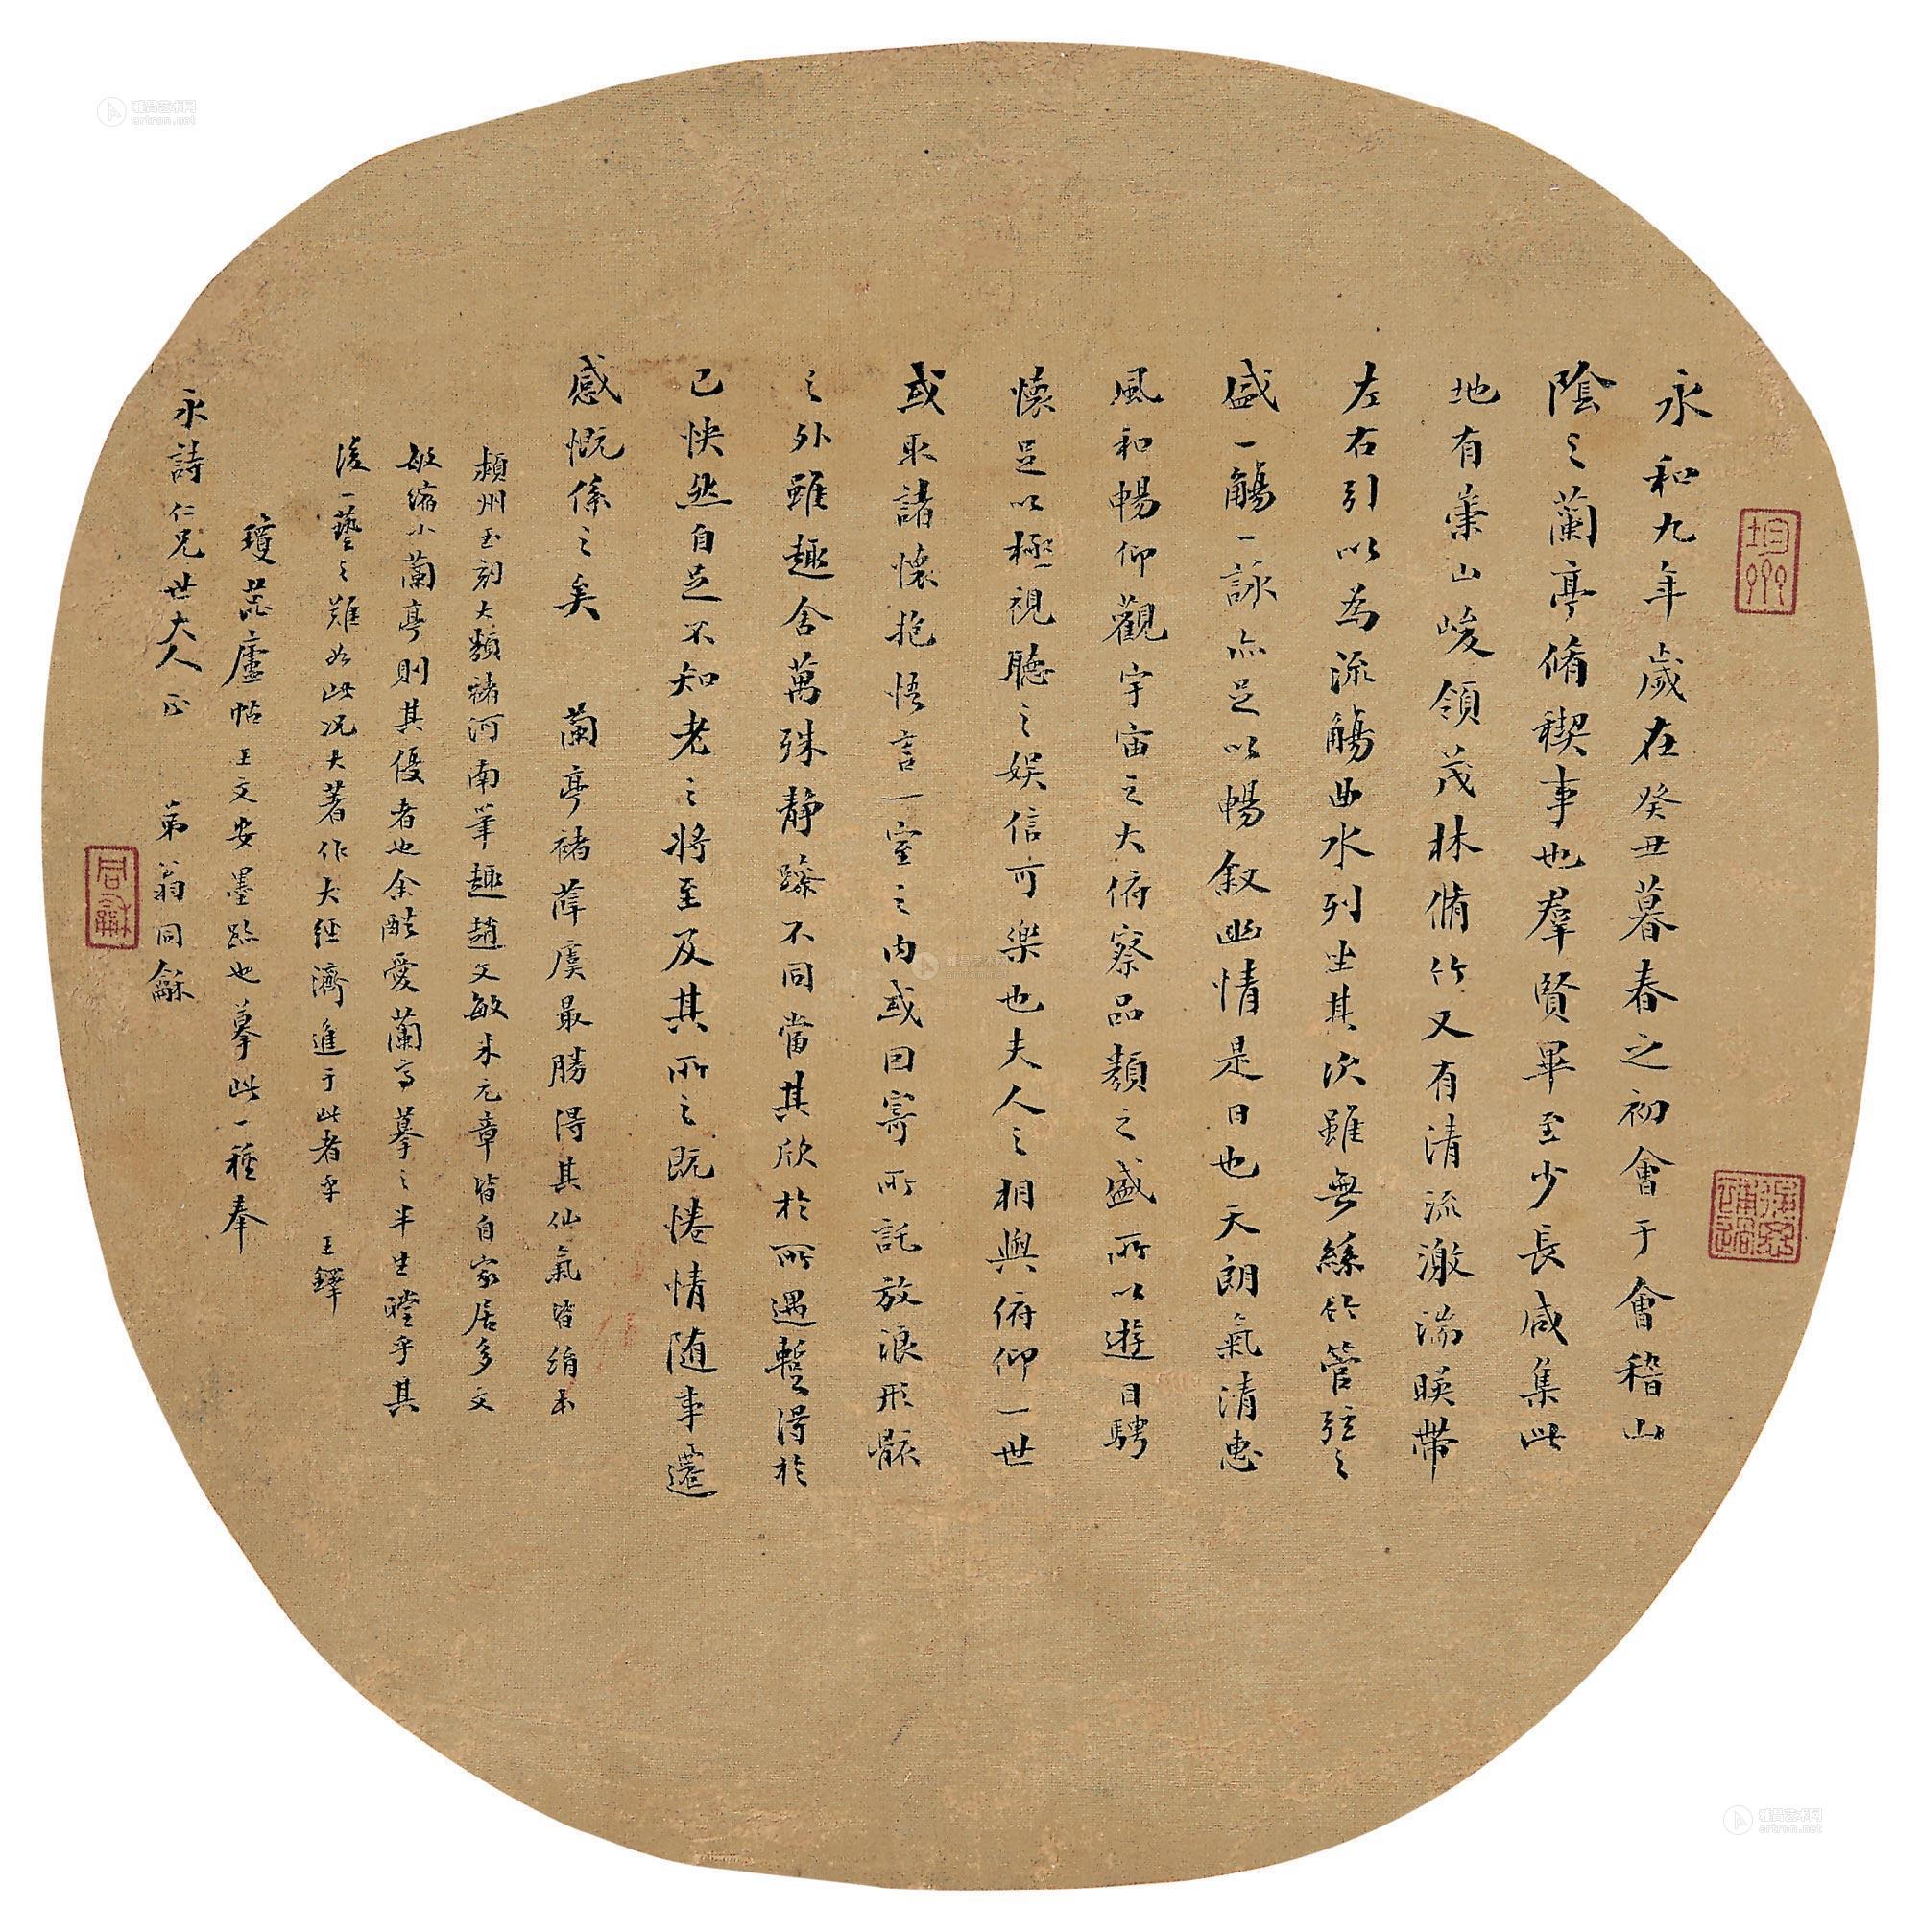 永和九年歲在癸丑暮春之初會于會稽山
陰之蘭亭脩稧事也羣賢畢至少長咸集此
地有崇山峻領茂林脩竹又有清流激湍暎帶
左右引以為流觴曲水列坐其次雖無絲竹管弦之
盛一觴一詠亦足以暢敘幽情是日也天朗氣清惠
風和暢仰觀宇宙之大俯察品類之盛所以遊目騁
懷足以極視聽之娛信可樂也夫人之相與俯仰一世
或取諸懷抱悟言一室之內或因寄所託放浪形骸
之外雖趣舍萬殊靜躁不同當其欣於所遇暫得於
己快然自足不知老之將至及其所之既惓情随事遷
感慨係之矣 蘭亭褚薛虞最勝得其仙氣皆絹本
潁州玉刻大類褚河南筆趣趙文敏米元章皆自家居多文
敏縮小蘭亭則其優者也余酷愛蘭亭摹之半生瞠乎其
後一藝之難如此况大著作大經濟進于此者乎 王鐸
瓊蕋廬帖王文安墨跡也摹此一種奉
永詩仁兄世大人正 弟翁同龢
同龢
雅昌艺术网
artron.net